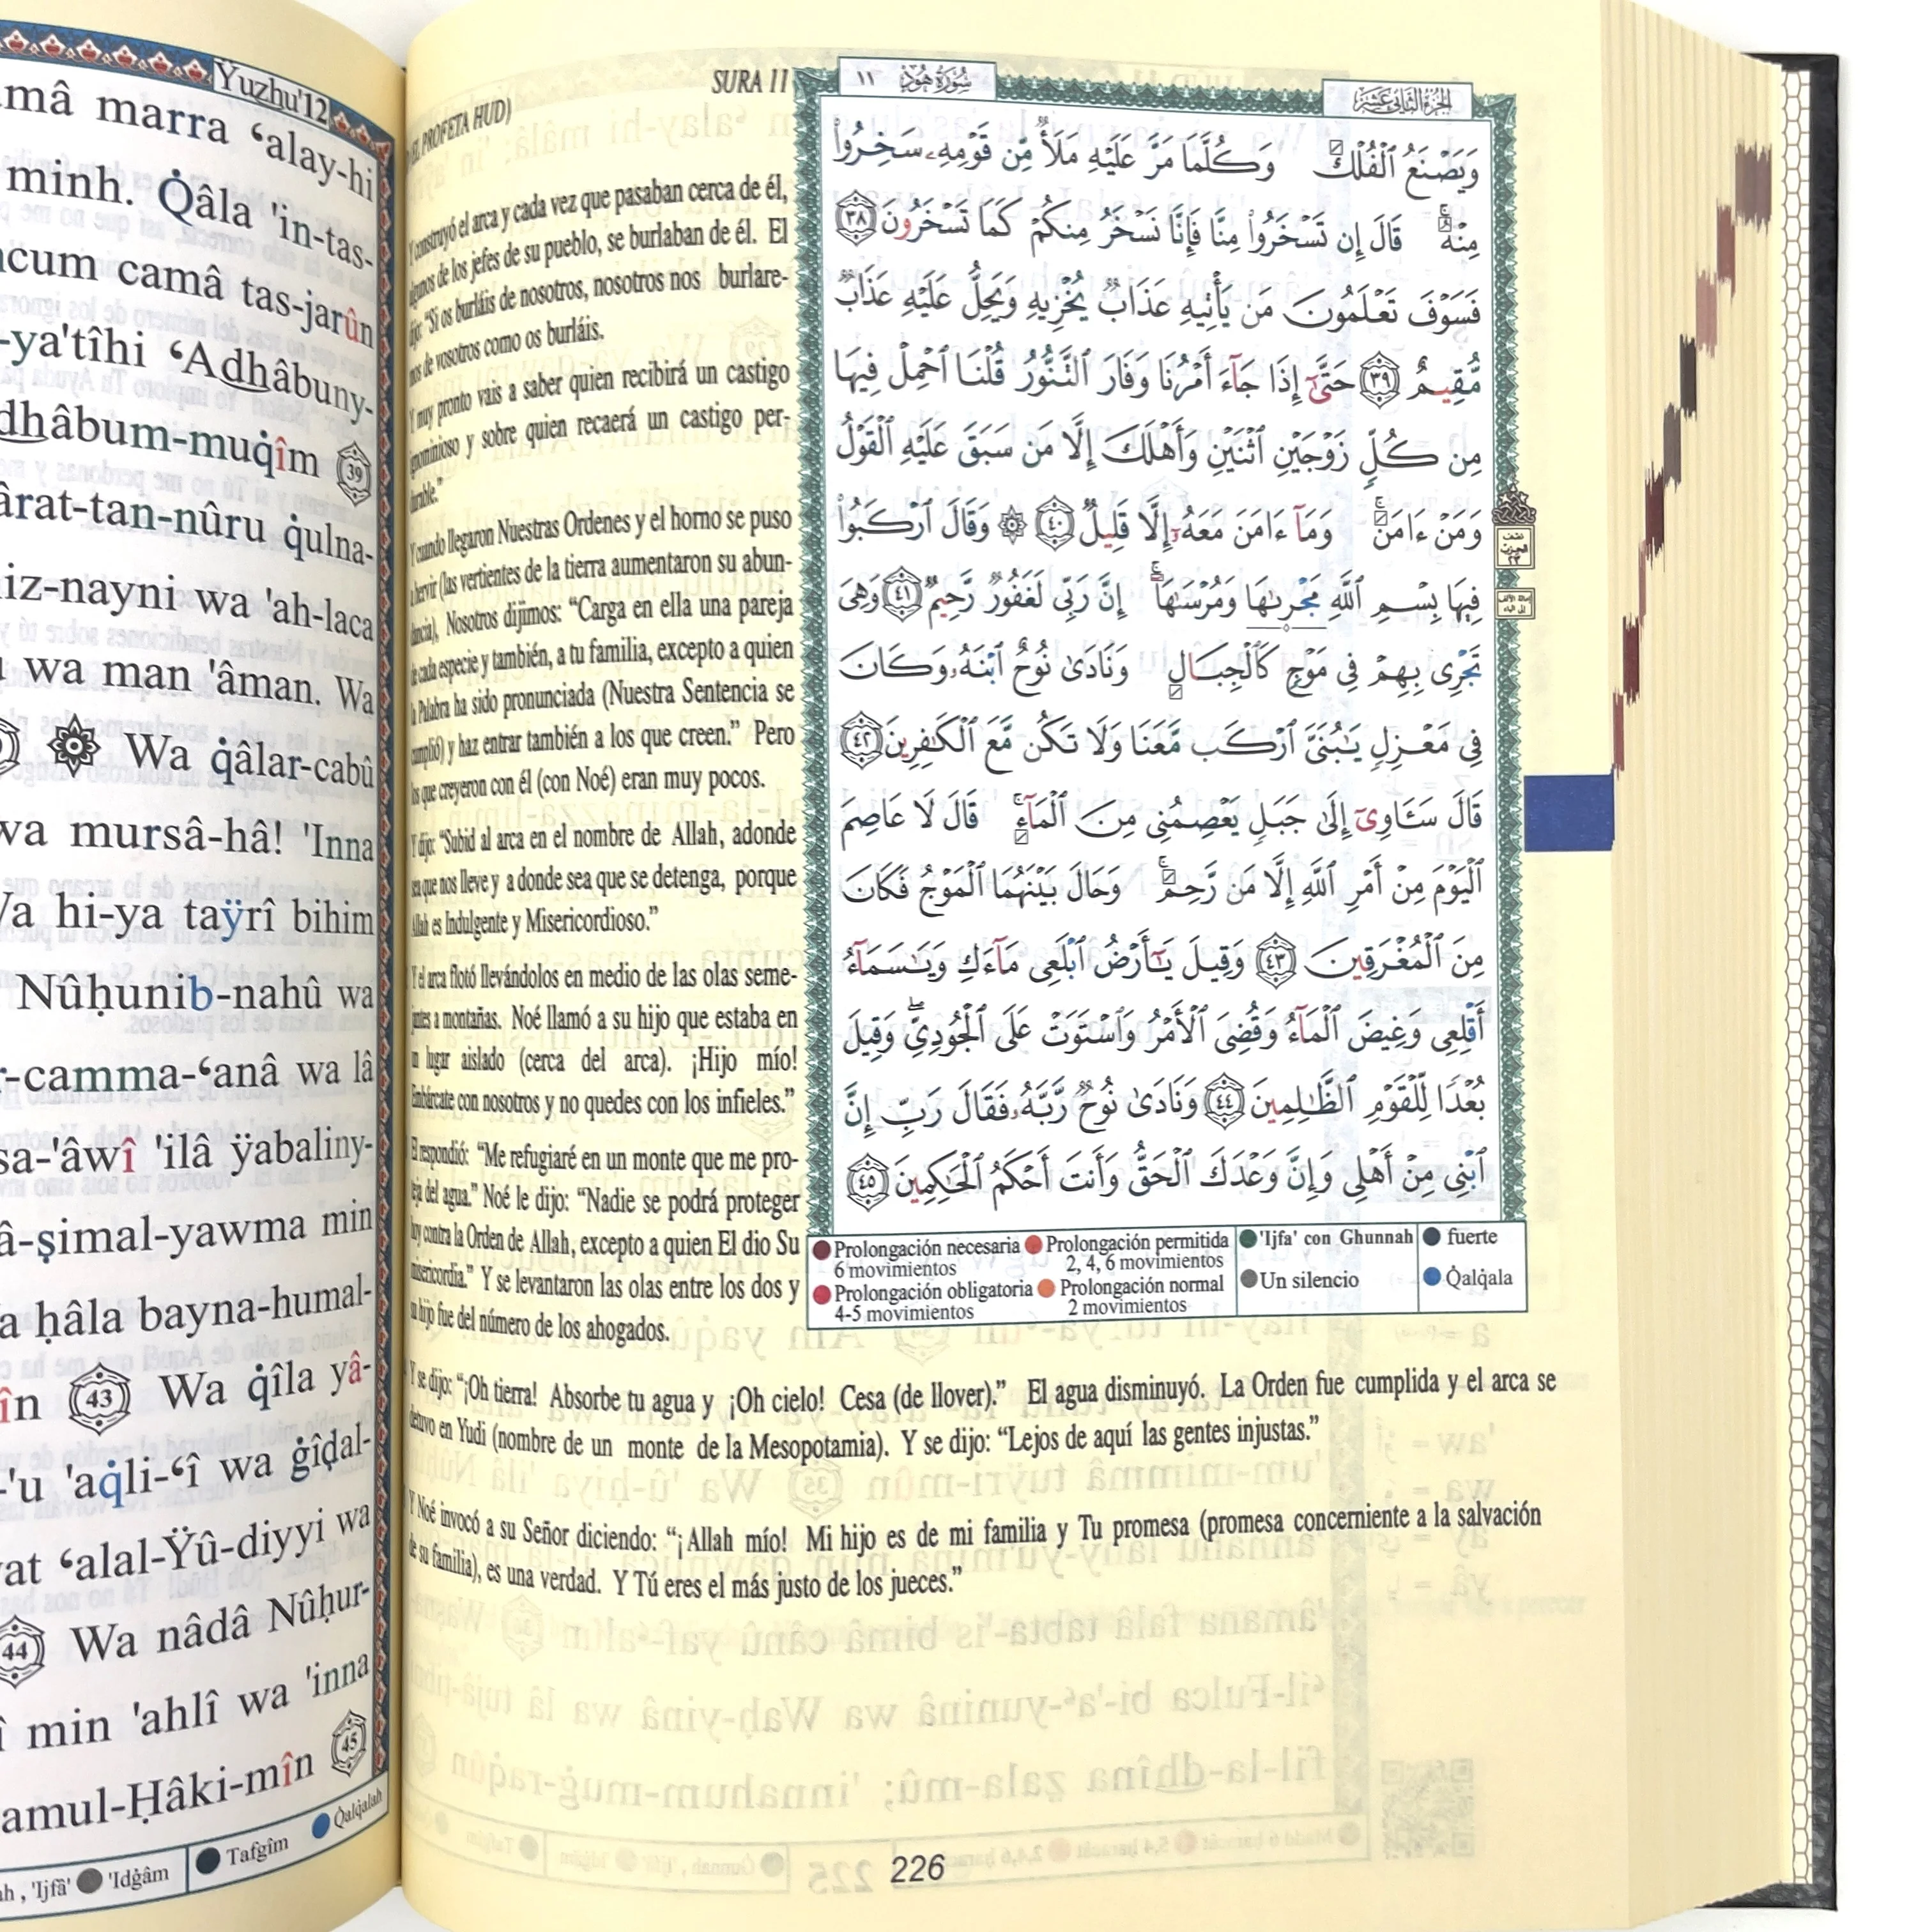 Ÿuzhu'12
mâ marra ‘alay-hi
minh. Q̇âla 'in-tas-
cum camâ tas-jarûn
-ya'tîhi ‘Adhâbuny-
dhâbum-muq̇îm 39
ârat-tan-nûru q̇ulna-
iz-nayni wa 'ah-laca
wa man 'âman. Wa
Wa q̇âlar-cabû
wa mursâ-hâ! 'Inna
Wa hi-ya taÿrî bihim
Nûḥunib-nahû wa
r-camma-‘anâ wa lâ
sa-'âwî 'ilâ ÿabaliny-
â-ṣimal-yawma min
ḥâla bayna-humal-
în 43 Wa q̇îla yâ-
-'u 'aq̇li-‘î wa ġîḍal-
at ‘alal-Ÿû-diyyi wa
44 Wa nâdâ Nûḥur-
î min 'ahlî wa 'inna
amul-Ḥâki-mîn 45
'Ijfâ' 'Idġâm Tafgîm Q̇alq̇alah
(EL PROFETA HUD) SURA 11
Y construyó el arca y cada vez que pasaban cerca de él,
algunos de los jefes de su pueblo, se burlaban de él. El
dijo: “Si os burláis de nosotros, nosotros nos burlare-
mos de vosotros como os burláis.
Y muy pronto vais a saber quien recibirá un castigo
ignominioso y sobre quien recaerá un castigo per-
durable.”
Y cuando llegaron Nuestras Ordenes y el horno se puso
a hervir (las vertientes de la tierra aumentaron su abun-
dancia), Nosotros dijimos: “Carga en ella una pareja
de cada especie y también, a tu familia, excepto a quien
la Palabra ha sido pronunciada (Nuestra Sentencia se
cumplió) y haz entrar también a los que creen.” Pero
los que creyeron con él (con Noé) eran muy pocos.
Y dijo: “Subid al arca en el nombre de Allah, adonde
sea que nos lleve y a donde sea que se detenga, porque
Allah es Indulgente y Misericordioso.”
Y el arca flotó llevándolos en medio de las olas seme-
jantes a montañas. Noé llamó a su hijo que estaba en
un lugar aislado (cerca del arca). ¡Hijo mío!
Embárcate con nosotros y no quedes con los infieles.”
El respondió: “Me refugiaré en un monte que me pro-
teja del agua.” Noé le dijo: “Nadie se podrá proteger
hoy contra la Orden de Allah, excepto a quien El dio Su
misericordia.” Y se levantaron las olas entre los dos y
su hijo fue del número de los ahogados.
الجزء الثاني عشر سورة هود ١١
وَيَصْنَعُ ٱلْفُلْكَ وَكُلَّمَا مَرَّ عَلَيْهِ مَلَأٌ مِّن قَوْمِهِۦ سَخِرُوا۟
مِنْهُ قَالَ إِن تَسْخَرُوا۟ مِنَّا فَإِنَّا نَسْخَرُ مِنكُمْ كَمَا تَسْخَرُونَ ٣٨
فَسَوْفَ تَعْلَمُونَ مَن يَأْتِيهِ عَذَابٌ يُخْزِيهِ وَيَحِلُّ عَلَيْهِ عَذَابٌ
مُّقِيمٌ ٣٩ حَتَّىٰٓ إِذَا جَآءَ أَمْرُنَا وَفَارَ ٱلتَّنُّورُ قُلْنَا ٱحْمِلْ فِيهَا
مِن كُلٍّ زَوْجَيْنِ ٱثْنَيْنِ وَأَهْلَكَ إِلَّا مَن سَبَقَ عَلَيْهِ ٱلْقَوْلُ
وَمَنْ ءَامَنَ وَمَآ ءَامَنَ مَعَهُۥٓ إِلَّا قَلِيلٌ ٤٠ ۞ وَقَالَ ٱرْكَبُوا۟
فِيهَا بِسْمِ ٱللَّهِ مَجْر۪ىٰهَا وَمُرْسَىٰهَآ إِنَّ رَبِّى لَغَفُورٌ رَّحِيمٌ ٤١ وَهِىَ
تَجْرِى بِهِمْ فِى مَوْجٍ كَٱلْجِبَالِ وَنَادَىٰ نُوحٌ ٱبْنَهُۥ وَكَانَ
فِى مَعْزِلٍ يَـٰبُنَىَّ ٱرْكَب مَّعَنَا وَلَا تَكُن مَّعَ ٱلْكَـٰفِرِينَ ٤٢
قَالَ سَـَٔاوِىٓ إِلَىٰ جَبَلٍ يَعْصِمُنِى مِنَ ٱلْمَآءِ قَالَ لَا عَاصِمَ
ٱلْيَوْمَ مِنْ أَمْرِ ٱللَّهِ إِلَّا مَن رَّحِمَ وَحَالَ بَيْنَهُمَا ٱلْمَوْجُ فَكَانَ
مِنَ ٱلْمُغْرَقِينَ ٤٣ وَقِيلَ يَـٰٓأَرْضُ ٱبْلَعِى مَآءَكِ وَيَـٰسَمَآءُ
أَقْلِعِى وَغِيضَ ٱلْمَآءُ وَقُضِىَ ٱلْأَمْرُ وَٱسْتَوَتْ عَلَى ٱلْجُودِىِّ ۖ وَقِيلَ
بُعْدًا لِّلْقَوْمِ ٱلظَّـٰلِمِينَ ٤٤ وَنَادَىٰ نُوحٌ رَّبَّهُۥ فَقَالَ رَبِّ إِنَّ
ٱبْنِى مِنْ أَهْلِى وَإِنَّ وَعْدَكَ ٱلْحَقُّ وَأَنتَ أَحْكَمُ ٱلْحَـٰكِمِينَ ٤٥
Prolongación necesaria 6 movimientos
Prolongación permitida 2, 4, 6 movimientos
'Ijfa' con Ghunnah
fuerte
Prolongación obligatoria 4-5 movimientos
Prolongación normal 2 movimientos
Un silencio
Q̇alq̇ala
Y se dijo: “¡Oh tierra! Absorbe tu agua y ¡Oh cielo! Cesa (de llover).” El agua disminuyó. La Orden fue cumplida y el arca se
detuvo en Yudi (nombre de un monte de la Mesopotamia). Y se dijo: “Lejos de aquí las gentes injustas.”
Y Noé invocó a su Señor diciendo: “¡Allah mío! Mi hijo es de mi familia y Tu promesa (promesa concerniente a la salvación
de su familia), es una verdad. Y Tú eres el más justo de los jueces.”
226